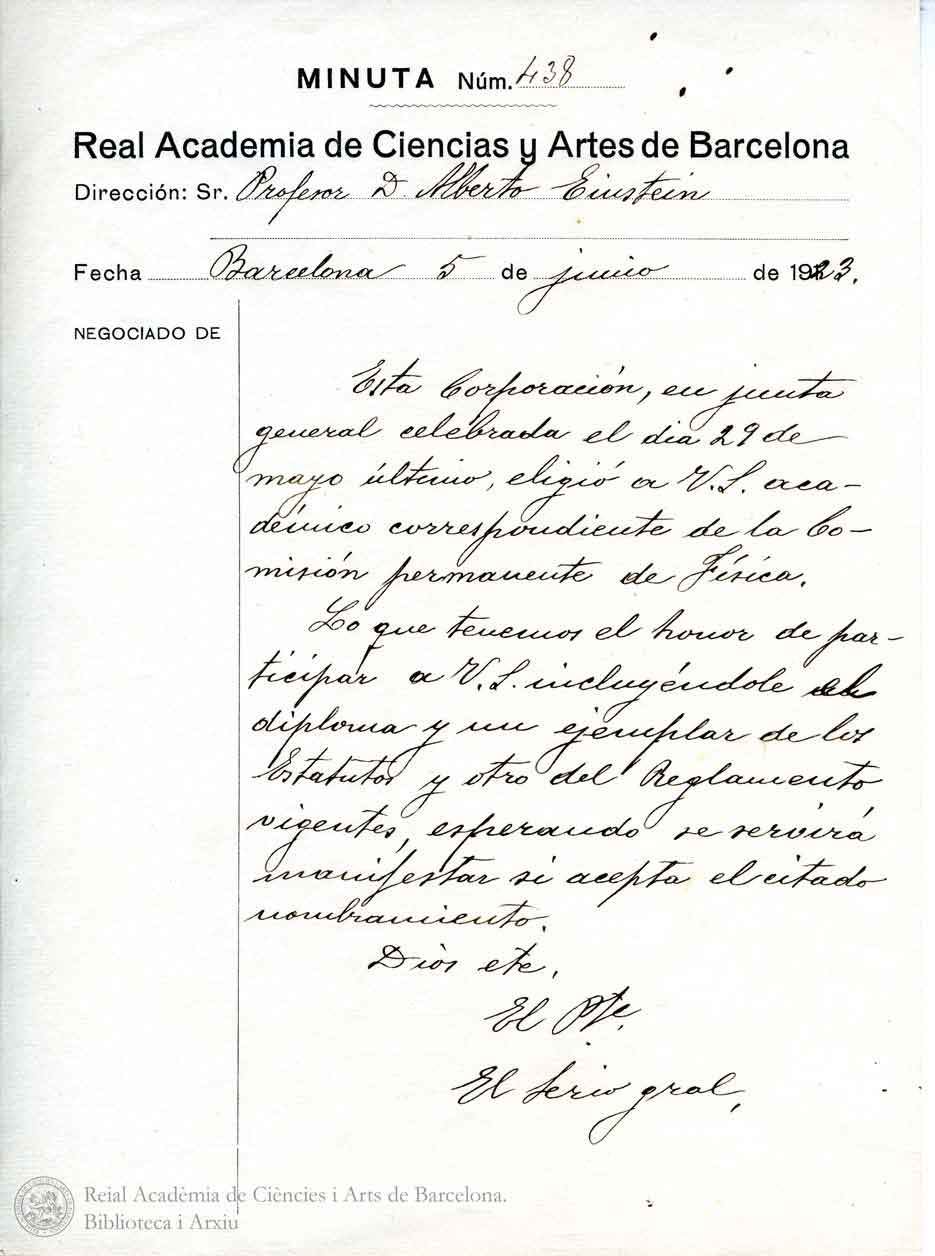 MINUTA Núm. 438
Real Academia de Ciencias y Artes de Barcelona
Dirección: Sr. Profesor D. Alberto Einstein
Fecha Barcelona 5 de junio de 1923.
NEGOCIADO DE
Esta Corporación, en junta
general celebrada el dia 29 de
mayo último, eligió a V.S. aca-
démico correspondiente de la Co-
misión permanente de Física.
Lo que tenemos el honor de par-
ticipar a V.S. incluyéndole el
diploma y un ejemplar de los
Estatutos y otro del Reglamento
vigentes, esperando se servirá
manifestar si acepta el citado
nombramiento.
Dios etc.
El Pte.
El Serio gral,
Reial Acadèmia de Ciències i Arts de Barcelona.
Biblioteca i Arxiu